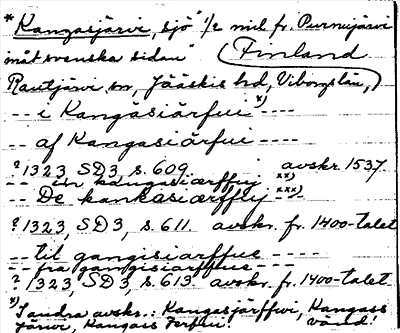 * Kangasjärvi, sjö "1/2 mil fr. Purnujärvi
inåt svenska sidan" (Finland
Rautjärvi sn, Jääskis hd, Viborgs län,)
-- i Kangäsiärfui x) ----
-- af Kangasiärfui ----
? 1323, SD3, s. 609. avskr. 1537.
-- in kangasiærffuj xx) --
-- De kankasiærffly xxx) --
? 1323, SD3, s. 611. avskr. fr. 1400-talet
-- til gangisiærffue ----
-- fra gangisiærffue ----
? 1323, SD3, s. 613. avskr. fr. 1400-talet
x) Andra avskr.: Kangasjärffwi, Kangass
järvi, Kangass